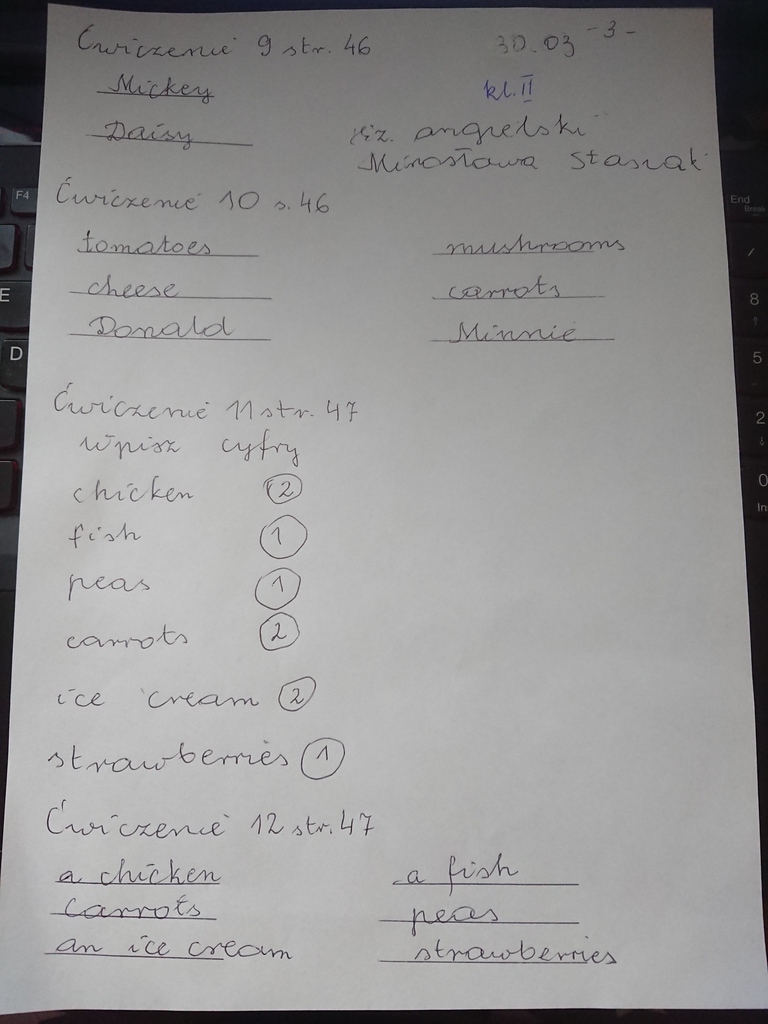 Ćwiczenie 9 str. 46
30.03 -3-
Mickey
kl. II
Daisy
jęz. angielski
Mirosława Staszak
Ćwiczenie 10 s. 46
tomatoes mushrooms
cheese carrots
Donald Minnie
Ćwiczenie 11 str. 47
wpisz cyfry
chicken 2
fish 1
peas 1
carrots 2
ice cream 2
strawberries 1
Ćwiczenie 12 str. 47
a chicken a fish
carrots peas
an ice cream strawberries
F4
E
D
End
Break
8
5
2
0
In